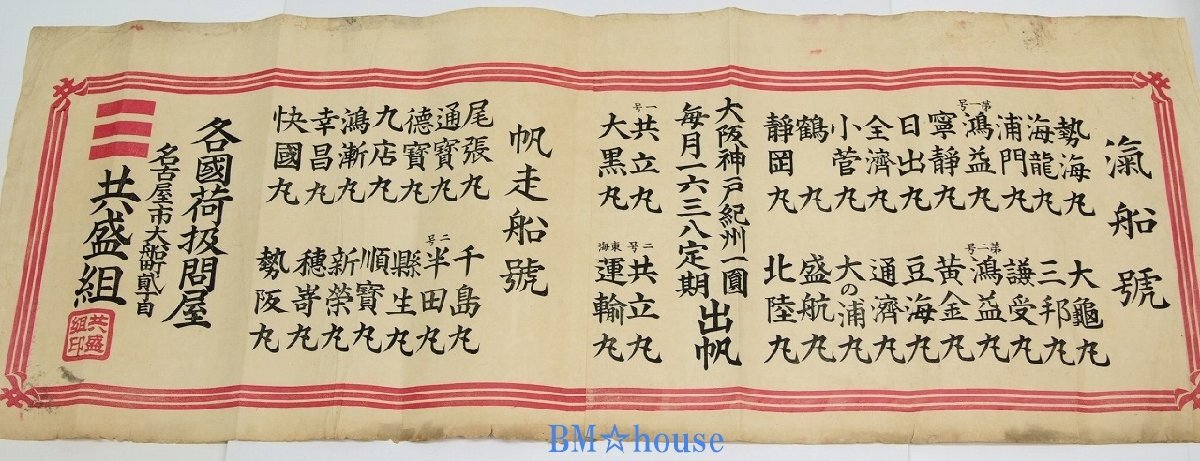 滊船號
勢海丸 大龜丸
海龍丸 三邦丸
浦門丸 謙受丸
第一号鴻益丸 第一号鴻益丸
寧靜丸 黄金丸
日出丸 豆海丸
全濟丸 通濟丸
小菅丸 大の浦丸
鶴丸 盛航丸
靜岡丸 北陸丸
大阪神戸紀州一圓
毎月一六三八定期
出帆
一号共立丸 二号共立丸
大黒丸 東海運輸丸
帆走船號
尾張丸 千島丸
通寶丸 二号半田丸
德寶丸 縣生丸
九店丸 順寶丸
鴻漸丸 新榮丸
幸昌丸 穗嵜丸
快國丸 勢阪丸
各國荷扱問屋
名古屋市大船町貳丁目
共盛組
共盛組印
BM☆house